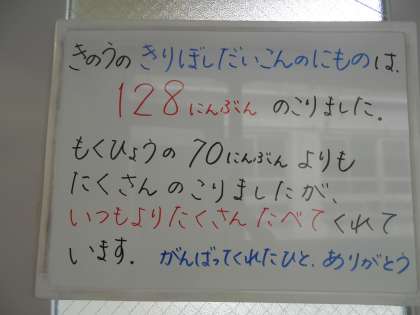 きのうの きりぼしだいこんのにものは、
128にんぶん のこりました。
もくひょうの 70にんぶん よりも
たくさん のこりましたが、
いつもよりたくさん たべて くれて
います. がんばってくれたひと、ありがとう